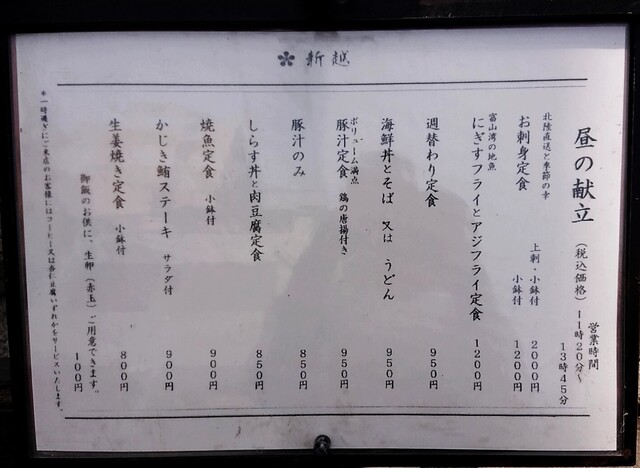 新越
昼の献立
(税込価格)
営業時間
11時20分〜
13時45分
北陸直送と季節の幸
お刺身定食
上刺・小鉢付 2000円
小鉢付 1200円
富山湾の地魚
にぎすフライとアジフライ定食 1200円
週替わり定食 950円
海鮮丼とそば 又は うどん 950円
ボリューム満点
豚汁定食 鶏の唐揚付き 950円
豚汁のみ 850円
しらす丼と肉豆腐定食 850円
焼魚定食 小鉢付 900円
かじき鮪ステーキ サラダ付 900円
生姜焼き定食 小鉢付 800円
御飯のお供に、生卵(赤玉)ご用意できます。 100円
*一時過ぎにご来店のお客様にはコーヒー又は杏仁豆腐いずれかをサービスいたします。